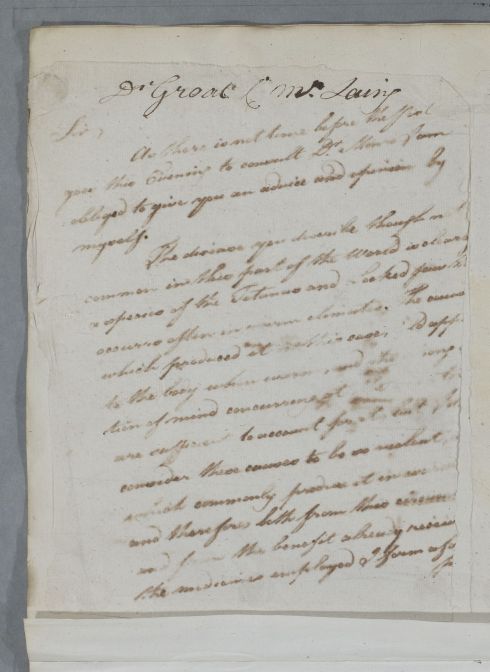 Dr Groat C Mr Laing
Sir,
As there is not time before the Post
goes this Evening to consult Dr. Monro I am
obliged to give you an advice and opinion by
myself.
The disease you describe though not
common in this part of the World is clearly
a species of the Tetanus and Locked jaw
occurs often in warm climates. The
which produced it in this case,
to the body when warm and
tion of mind concurring at
are sufficient to account for it but
consider these causes to be as violent
which commonly produce it in
and therefore both from this
and from the benefit already
the medicines employed I form